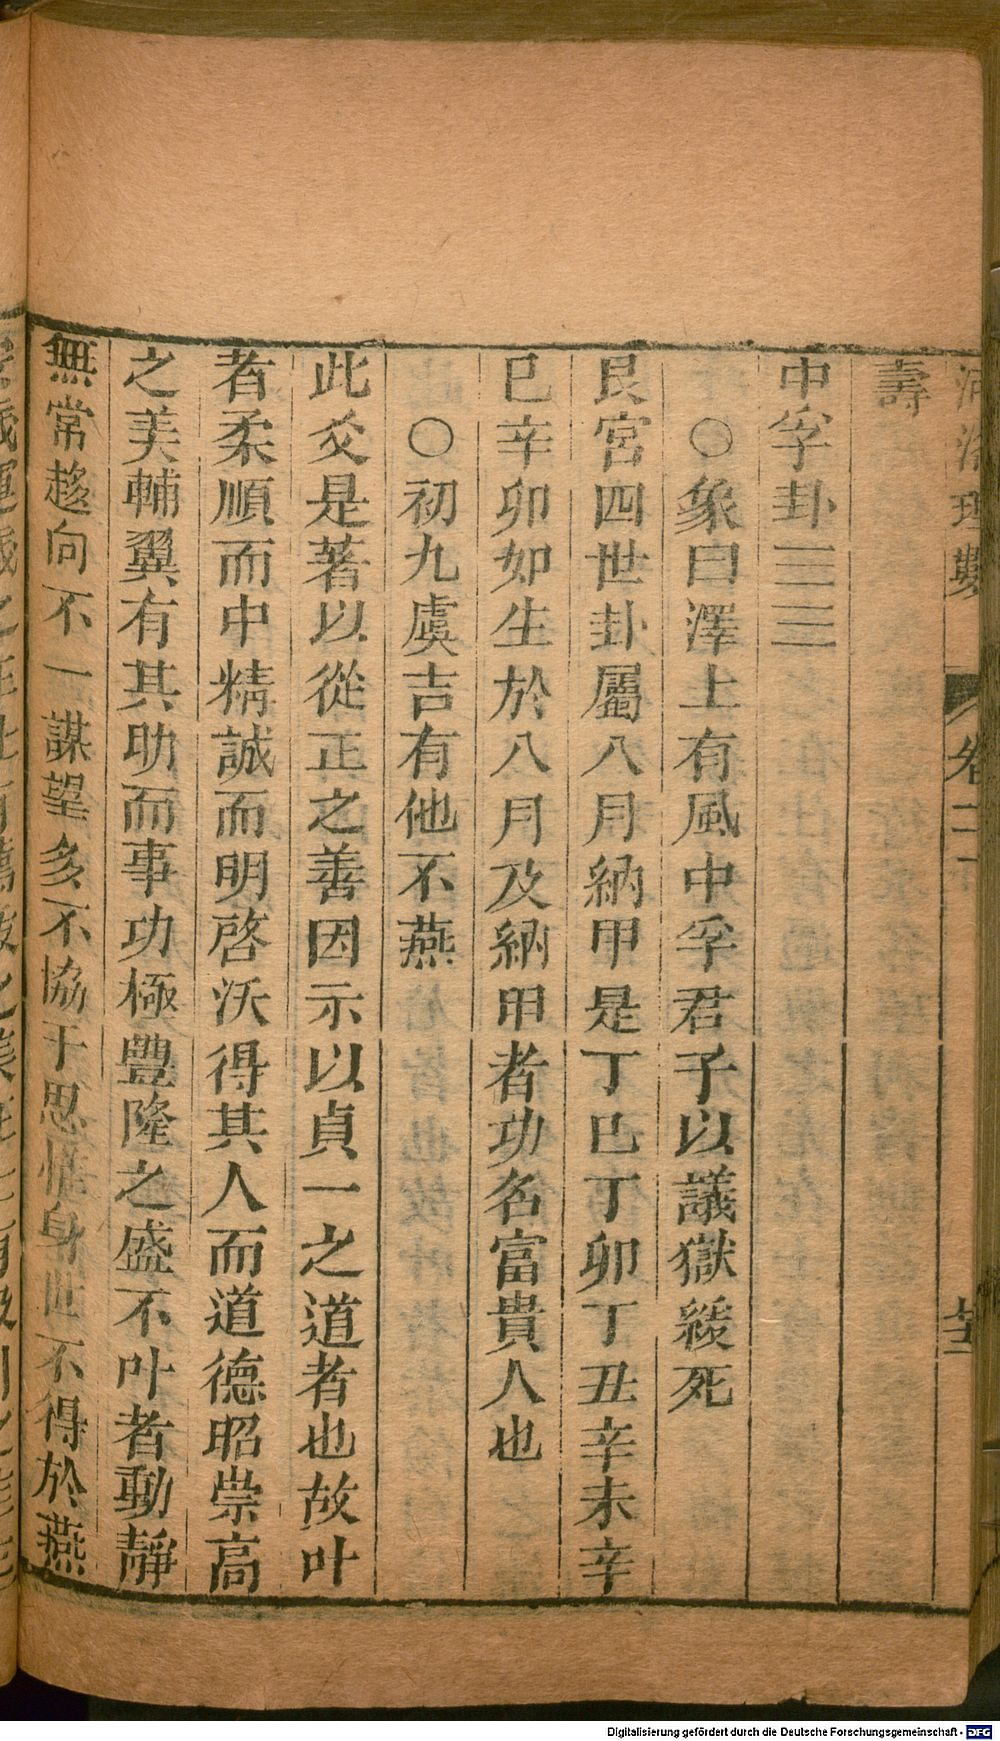 河洛理數 卷二 廿三
壽
中孚卦
○象曰澤上有風中孚君子以議獄緩死
艮宮四世卦屬八月納甲是丁巳丁卯丁丑辛未辛
巳辛卯如生於八月及納甲者功名富貴人也
○初九虞吉有他不燕
此爻是著以從正之善因示以貞一之道者也故叶
者柔順而中精誠而明啓沃得其人而道德昭崇高
之美輔翼有其助而事功極豐隆之盛不叶者動靜
無常趍向不一謀望多不協于思惟身世不得於燕
Digitalisierung gefördert durch die Deutsche Forschungsgemeinschaft - DFG